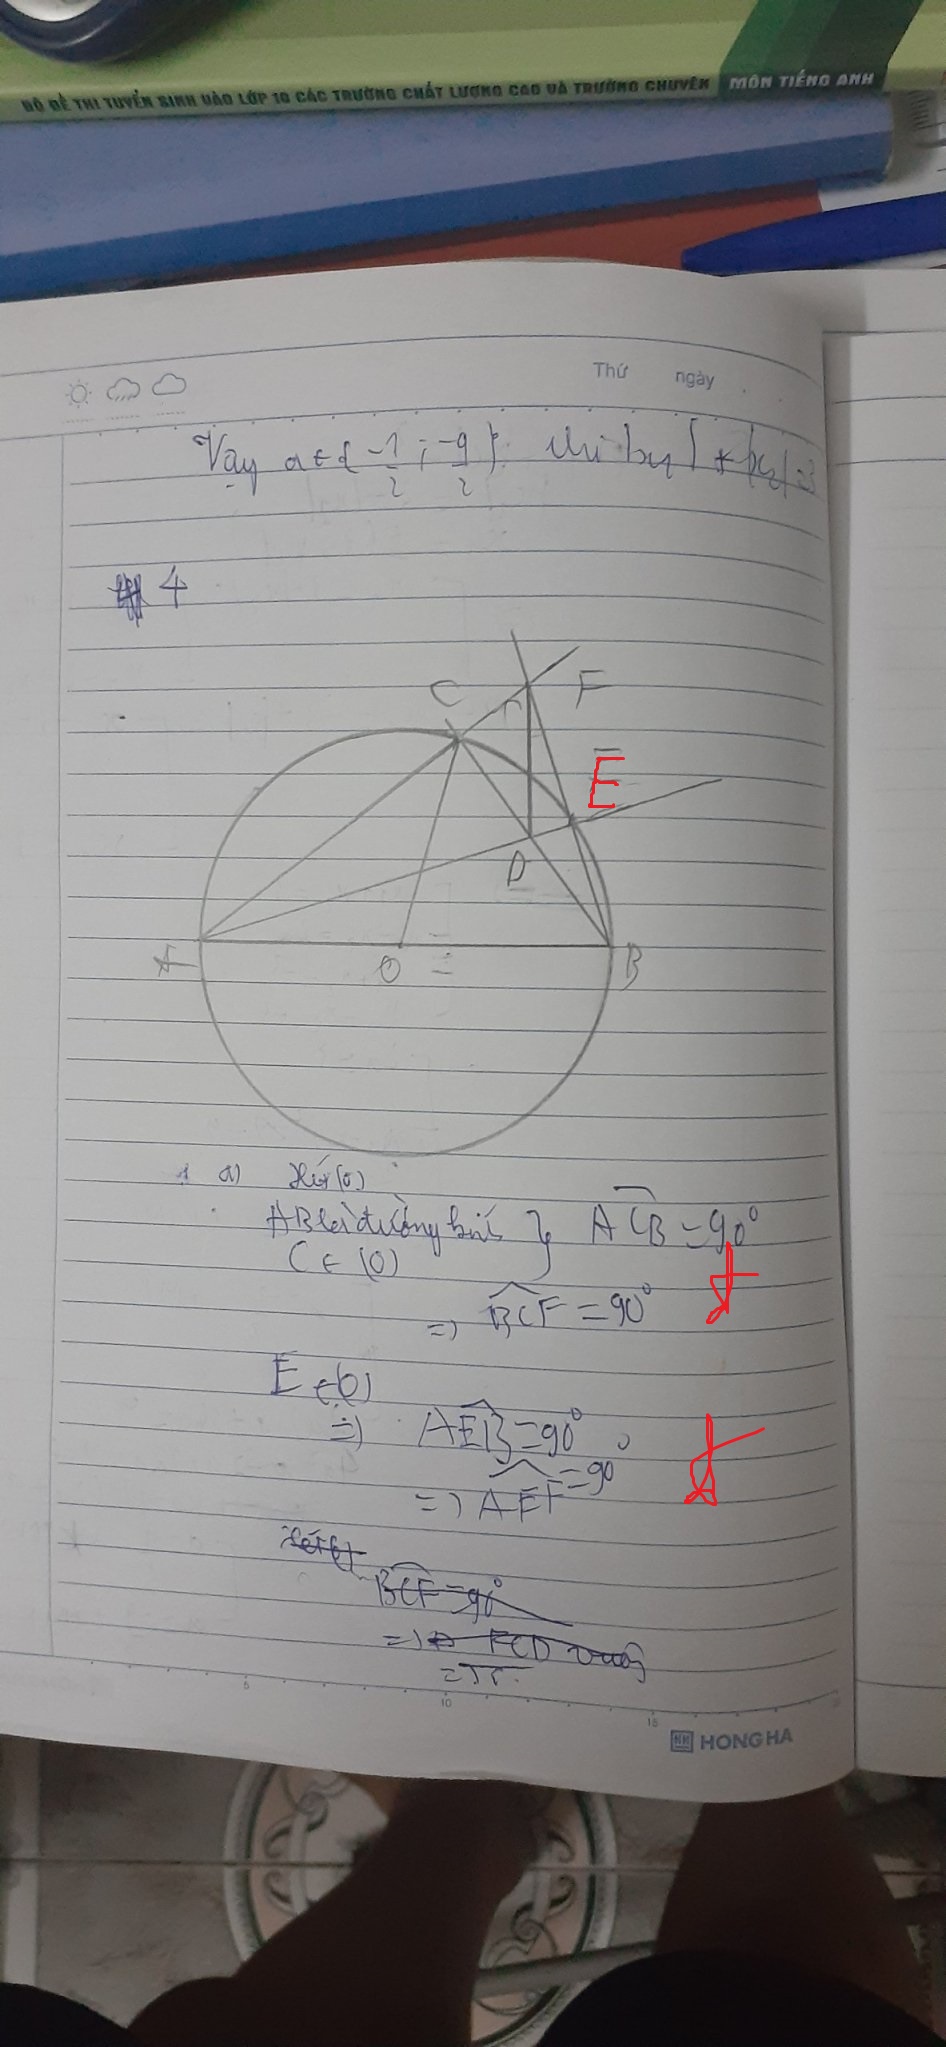 BỘ ĐỀ THI TUYỂN SINH VÀO LỚP 10 CÁC TRƯỜNG CHẤT LƯỢNG CAO VÀ TRƯỜNG CHUYÊN MÔN TIẾNG ANH
Thứ ngày
Vậy a ∈ { -1/2 ; -9/2 } thì
4
C F
E
D
A O B
a) Xét (O)
AB là đường kính } ACB = 90°
C ∈ (O)
=> BCF = 90°
E ∈ (O)
=> AEB = 90°
=> AEF = 90
BCF = 90°
=> FCD
5 10 15
HONG HA